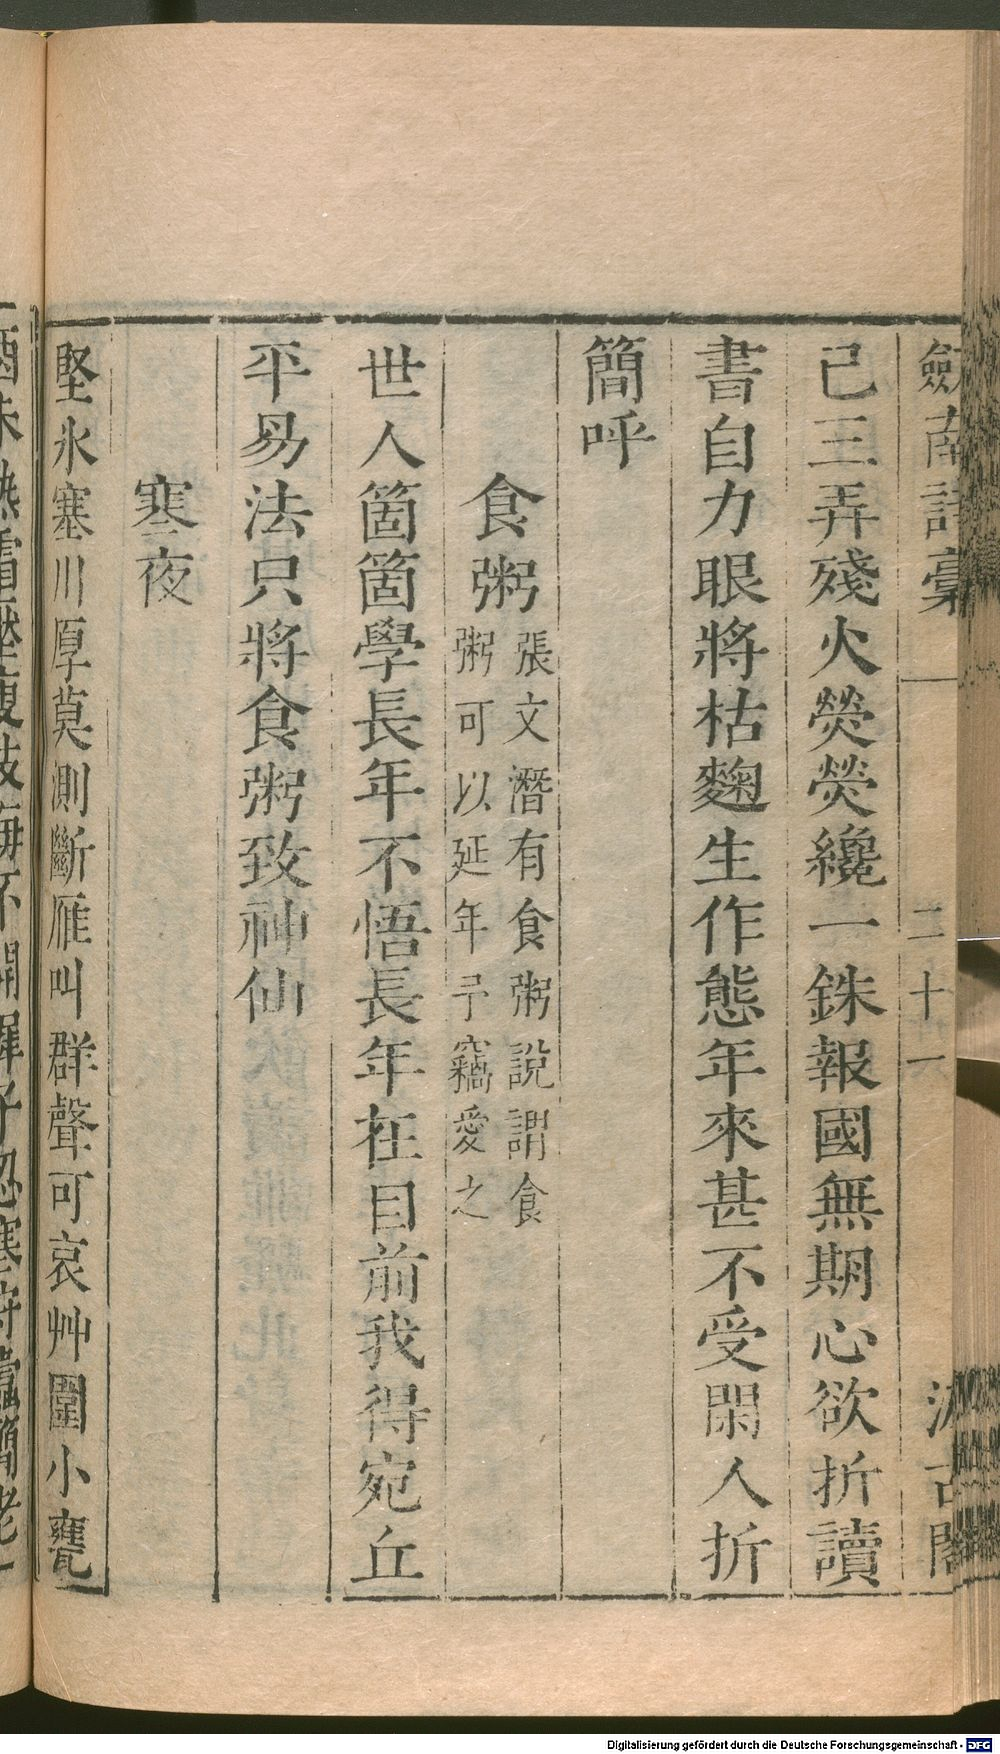 劒南詩稾
二十一
汲古閣
已三弄殘火熒熒纔一銖報國無期心欲折讀
書自力眼將枯麴生作態年來甚不受閑人折
簡呼
食粥
張文潛有食粥說謂食
粥可以延年予竊愛之
世人箇箇學長年不悟長年在目前我得宛丘
平易法只將食粥致神仙
寒夜
堅氷塞川厚莫測斷雁叫群聲可哀艸圍小甕
Digitalisierung gefördert durch die Deutsche Forschungsgemeinschaft - DFG